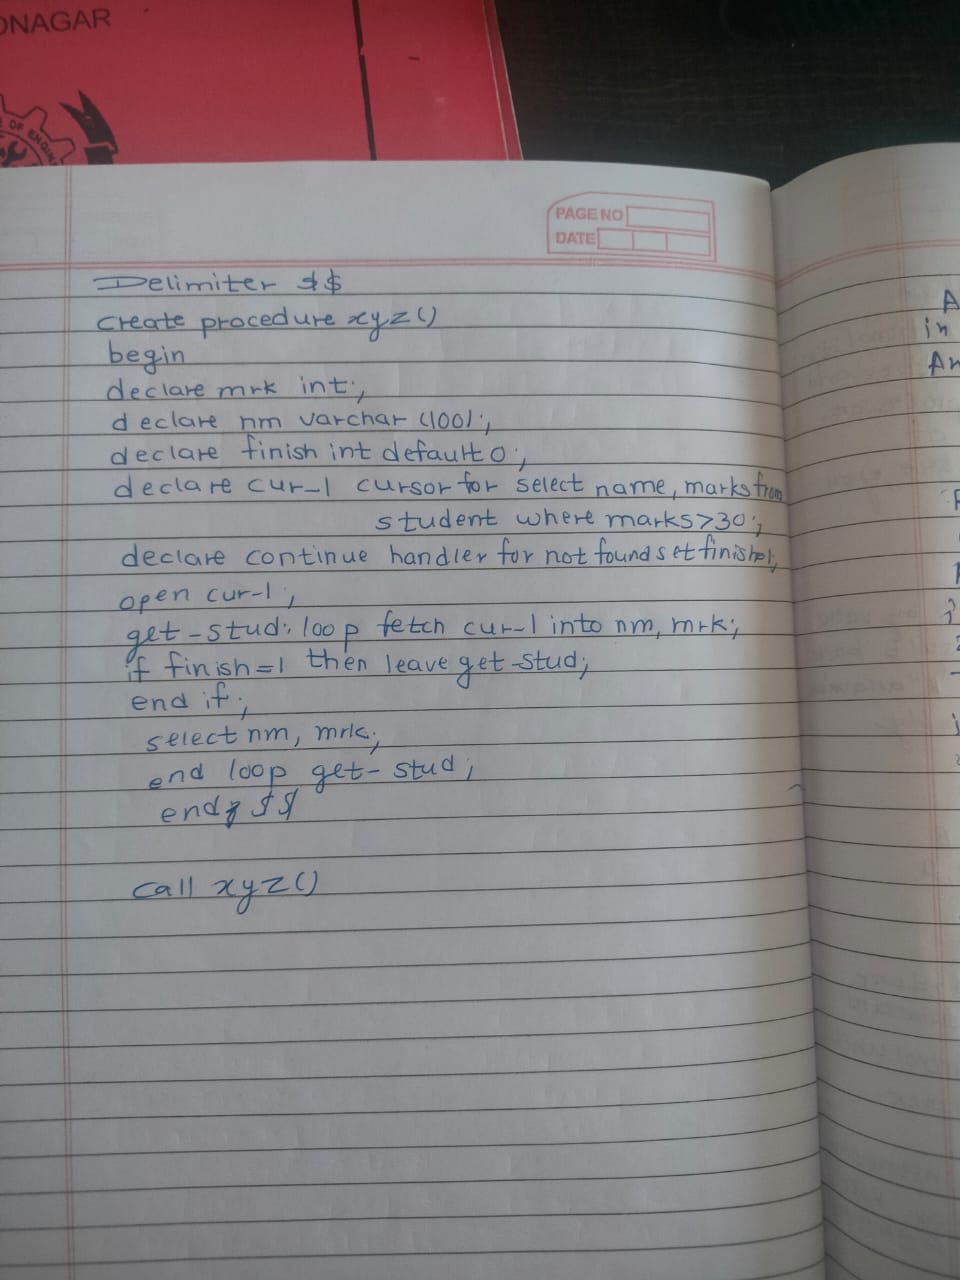 ONAGAR
OF ENGIN
PAGE NO
DATE
Delimiter $$
Create procedure xyz()
begin
declare mrk int;
declare nm varchar (100);
declare finish int default 0;
declare cur_1 cursor for select name, marks from
student where marks>30;
declare continue handler for not found set finish=1;
open cur-1;
get-stud: loop fetch cur-1 into nm, mrk;
if finish=1 then leave get-stud;
end if;
select nm, mrk;
end loop get-stud;
end; $$
call xyz()
A
in
An